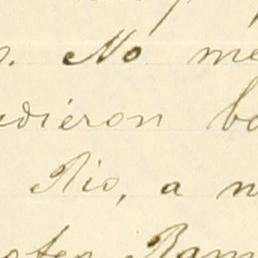 No me
udieron ba
Rio, a n
otes Ram